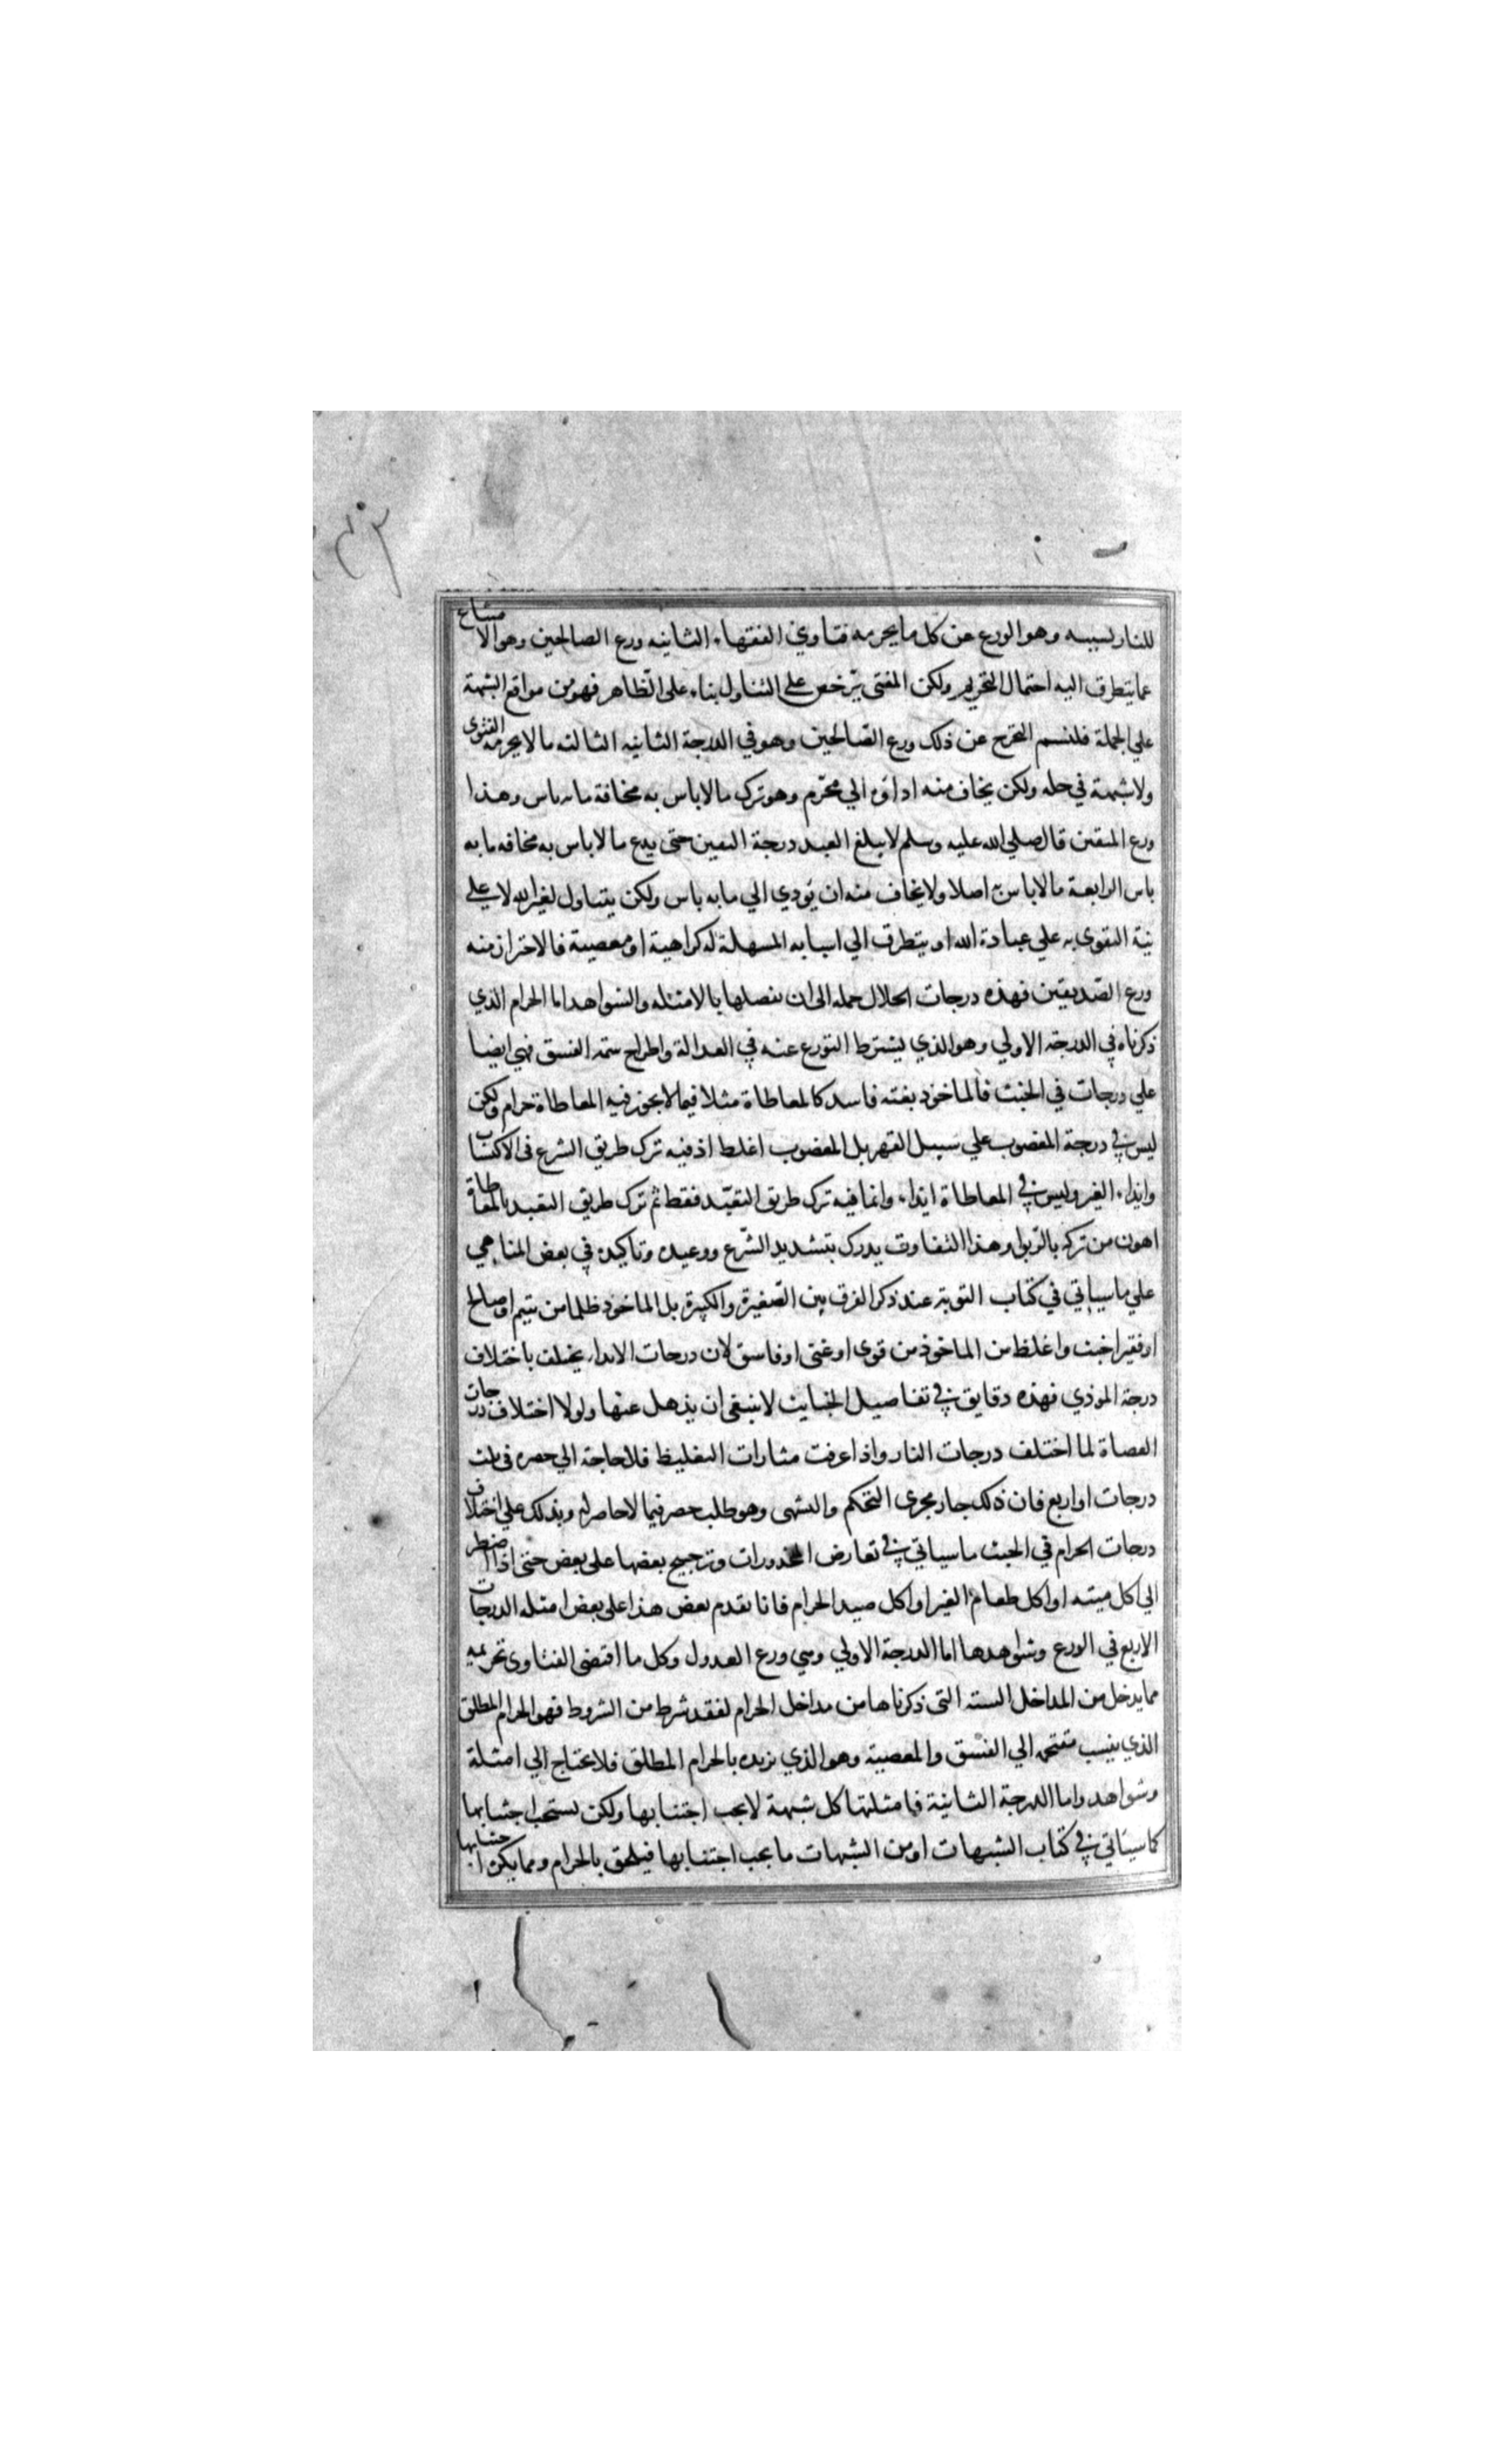 للنار بسببه وهو الورع عن كل ما يحرمه فتاوي الفقهاء الثانيه ورع الصالحين وهو الامتناع
عما يتطرق اليه احتمال التحريم ولكن المفتي يرخص علي التناول بناء علي الظاهر فهو من مواقع الشبهة
علي الجملة فلنسم التحرج عن ذلك ورع الصالحين وهو في الدرجة الثانيه الثالثه ما لا يحرمه الفتوي
ولا شبهة في حله ولكن يخاف منه اداؤه الي محرم وهو ترك ما لا باس به مخافة ما به باس وهذا
ورع المتقين قال صلي الله عليه وسلم لا يبلغ العبد درجة المتقين حتى يدع ما لا باس به مخافه ما به
باس الرابعة ما لا باس به اصلا ولا يخاف منه ان يؤدي الي ما به باس ولكن يتناول لغير الله لا علي
نية التقوى به علي عبادة الله او يتطرق الي اسبابه المسهلة له كراهية او معصية فالاحتراز منه
ورع الصديقين فهذه درجات الحلال جمله الى ان نفصلها بالامثله والشواهد اما الحرام الذي
ذكرناه في الدرجة الاولي وهو الذي يشترط التورع عنه في العدالة واطراح سمة الفسق فهي ايضا
علي درجات في الخبث فالماخوذ بعقد فاسد كالمعاطاة مثلا فيما لا يجوز فيه المعاطاة حرام ولكن
ليس في درجة المغصوب علي سبيل القهر بل المغصوب اغلظ اذ فيه ترك طريق الشرع في الاكتساب
وايذاء الغير وليس في المعاطاة ايذاء وانما فيه ترك طريق التعبد فقط ثم ترك طريق التعبد بالمعاطاة
اهون من تركه بالربوا وهذا التفاوت يدرك بتشديد الشرع ووعيده وتاكيده في بعض المناهي
علي ما سياتي في كتاب التوبة عند ذكر الفرق بين الصغيرة والكبيرة بل الماخوذ ظلما من يتيم او صالح
او فقير اخبث واغلظ من الماخوذ من قوي او غني او فاسق لان درجات الايذاء يختلف باختلاف
درجة الموذي فهذه دقايق في تفاصيل الخبايث لا ينبغي ان يذهل عنها ولولا اختلاف درجات
العصاة لما اختلف درجات النار واذا عرفت مثارات التغليظ فلا حاجة الي حصره في ثلث
درجات او اربع فان ذلك جار مجرى التحكم والتشهي وهو طلب حصر فيما لا حاصر له ويدلك علي اختلاف
درجات الحرام في الخبث ما سياتي في تعارض المحذورات وترجيح بعضها علي بعض حتى اذا اضطر
الي اكل ميتة او اكل طعام الغير او اكل صيد الحرام فانا نقدم بعض هذا علي بعض امثله الدرجات
الاربع في الورع وشواهدها اما الدرجة الاولي وهي ورع العدول وكل ما اقتضى الفتاوى تحريمه
مما يدخل من المداخل الستة التي ذكرناها من مداخل الحرام لفقد شرط من الشروط فهو الحرام المطلق
الذي ينسب مقتحمه الي الفسق والمعصية وهو الذي نريده بالحرام المطلق فلا يحتاج الي امثلة
وشواهد واما الدرجة الثانية فامثلتها كل شبهة لا يجب اجتنابها ولكن يستحب اجتنابها
كما سياتي في كتاب الشبهات او من الشبهات ما يجب اجتنابها فيلحق بالحرام ومما يكره اجتنابها